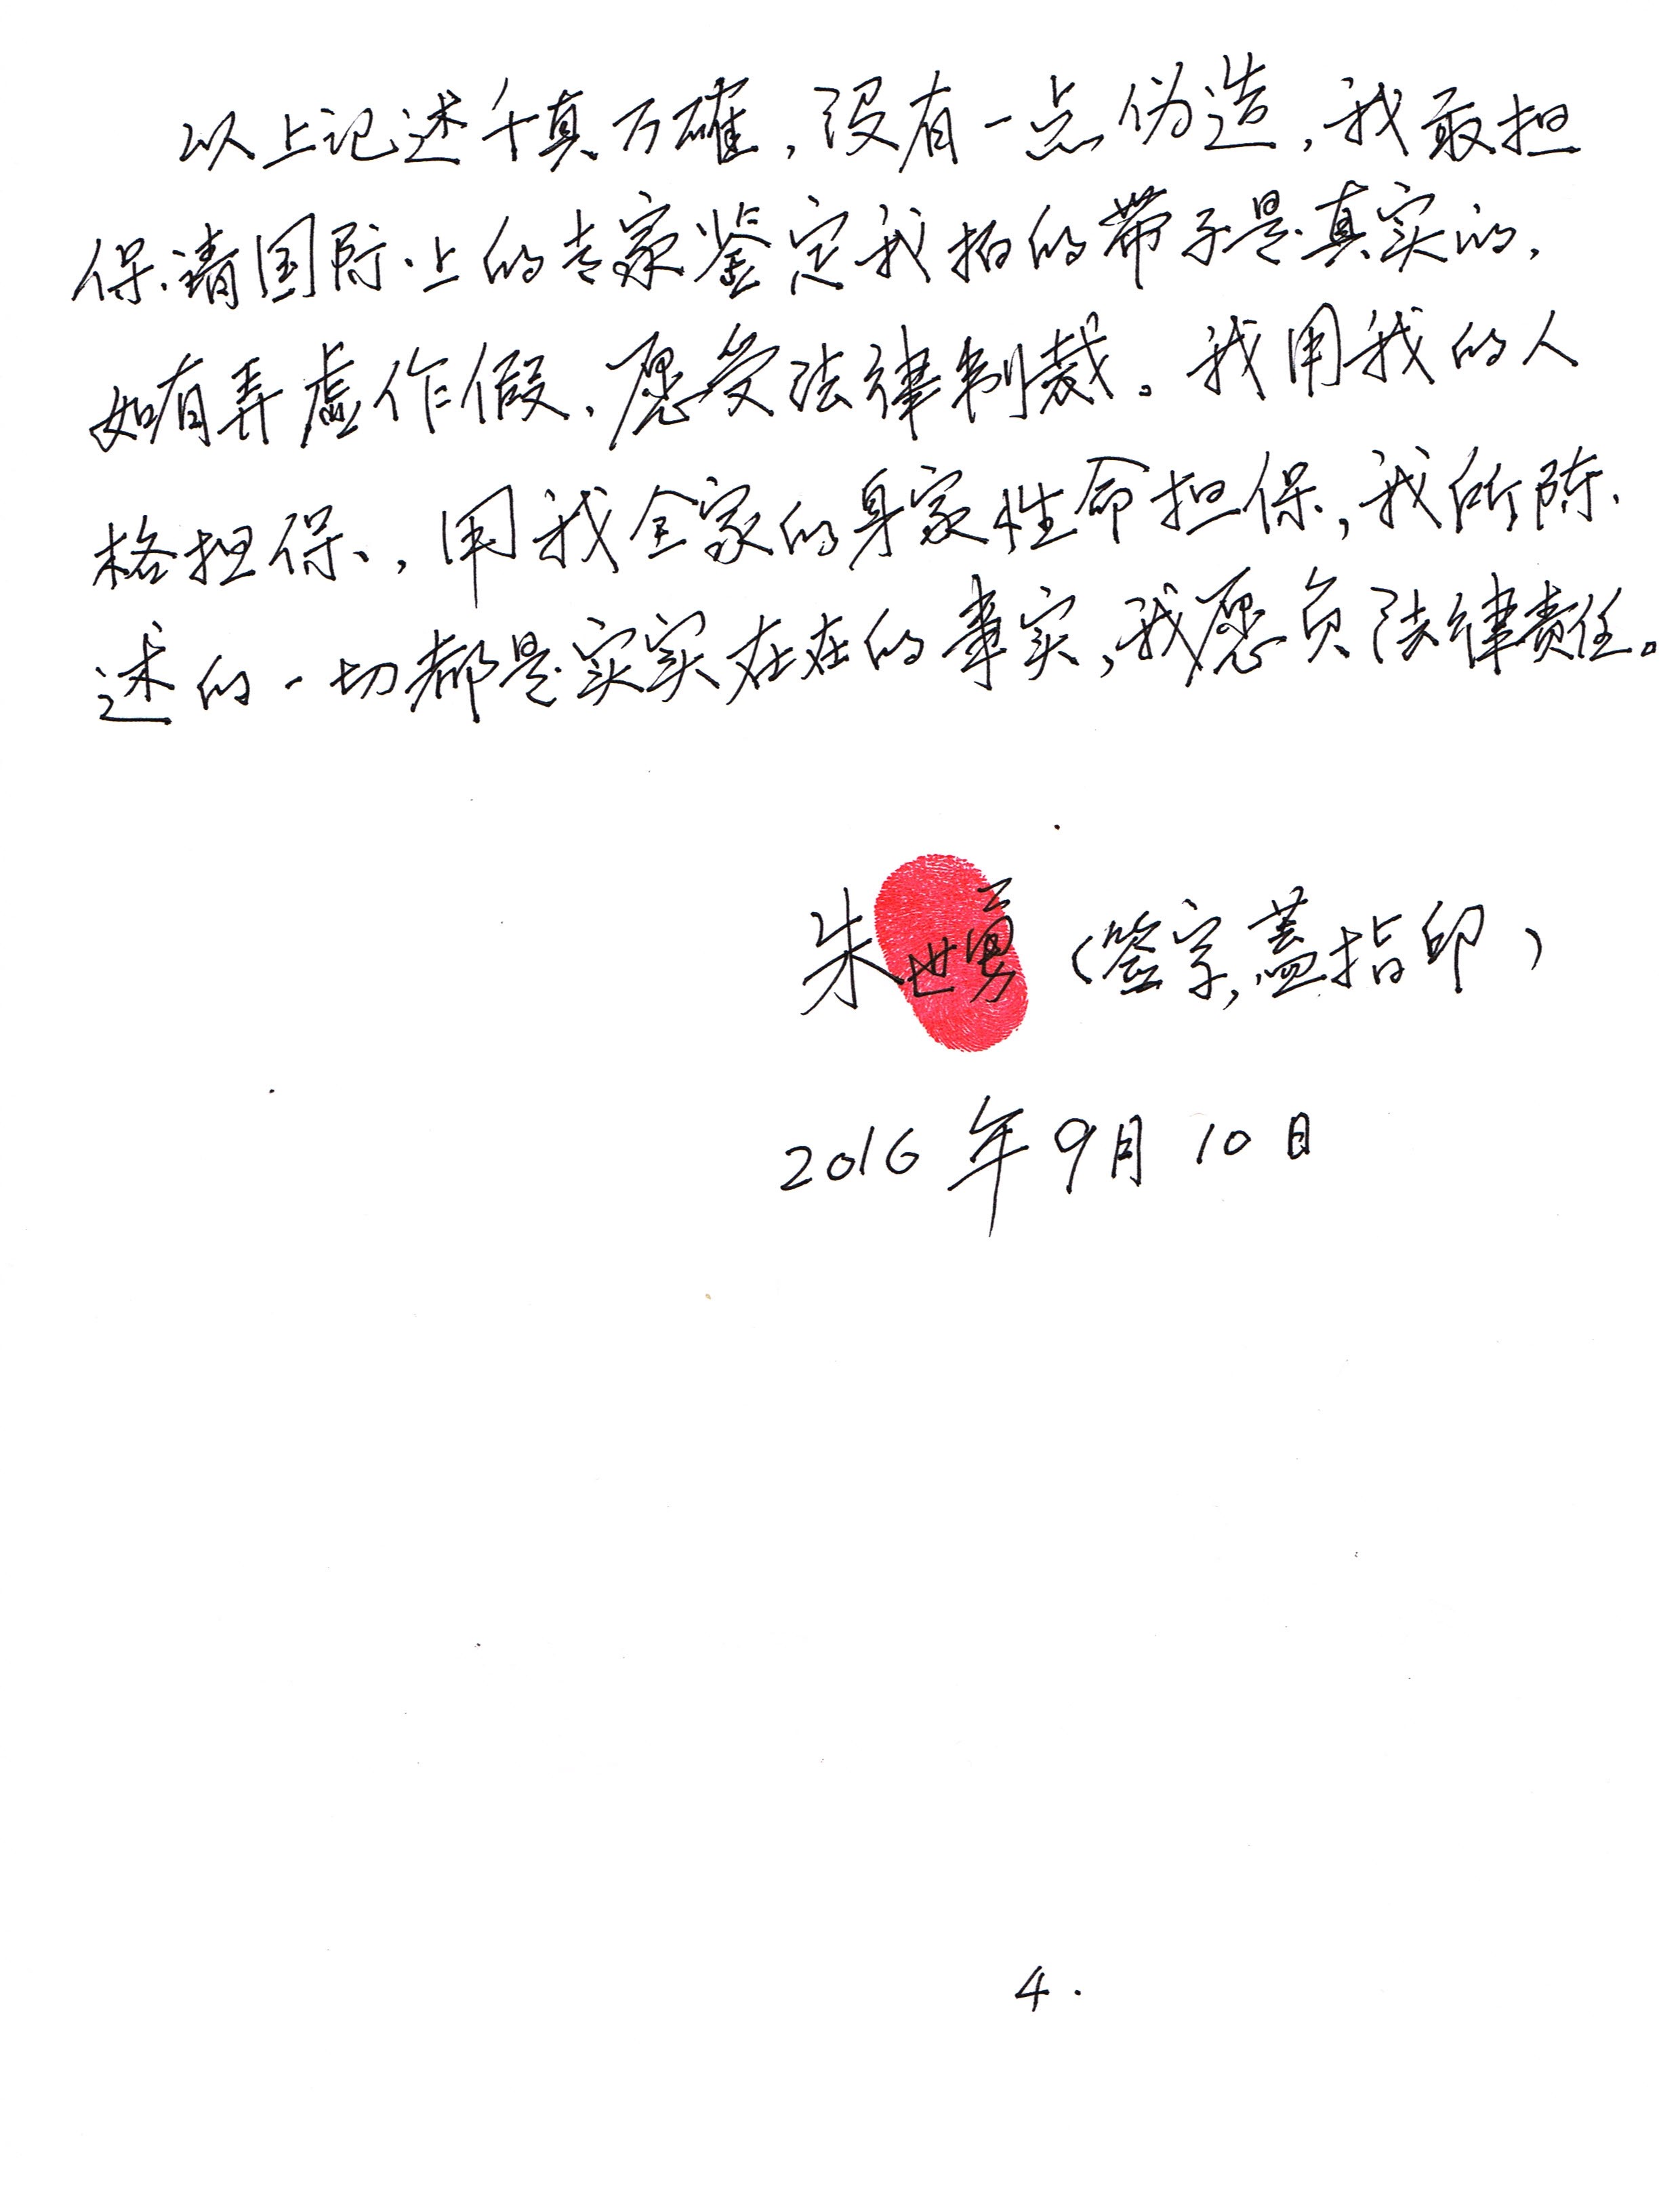 以上记述千真万確，没有一点伪造，我敢担
保请国际上的专家鉴定我拍的带子是真实的，
如有弄虚作假、愿受法律制裁。我用我的人
格担保，用我全家的身家性命担保，我所陈
述的一切都是实实在在的事实，我愿负法律责任。
朱世勇（签字，蓋指印）
2016年9月10日
4.